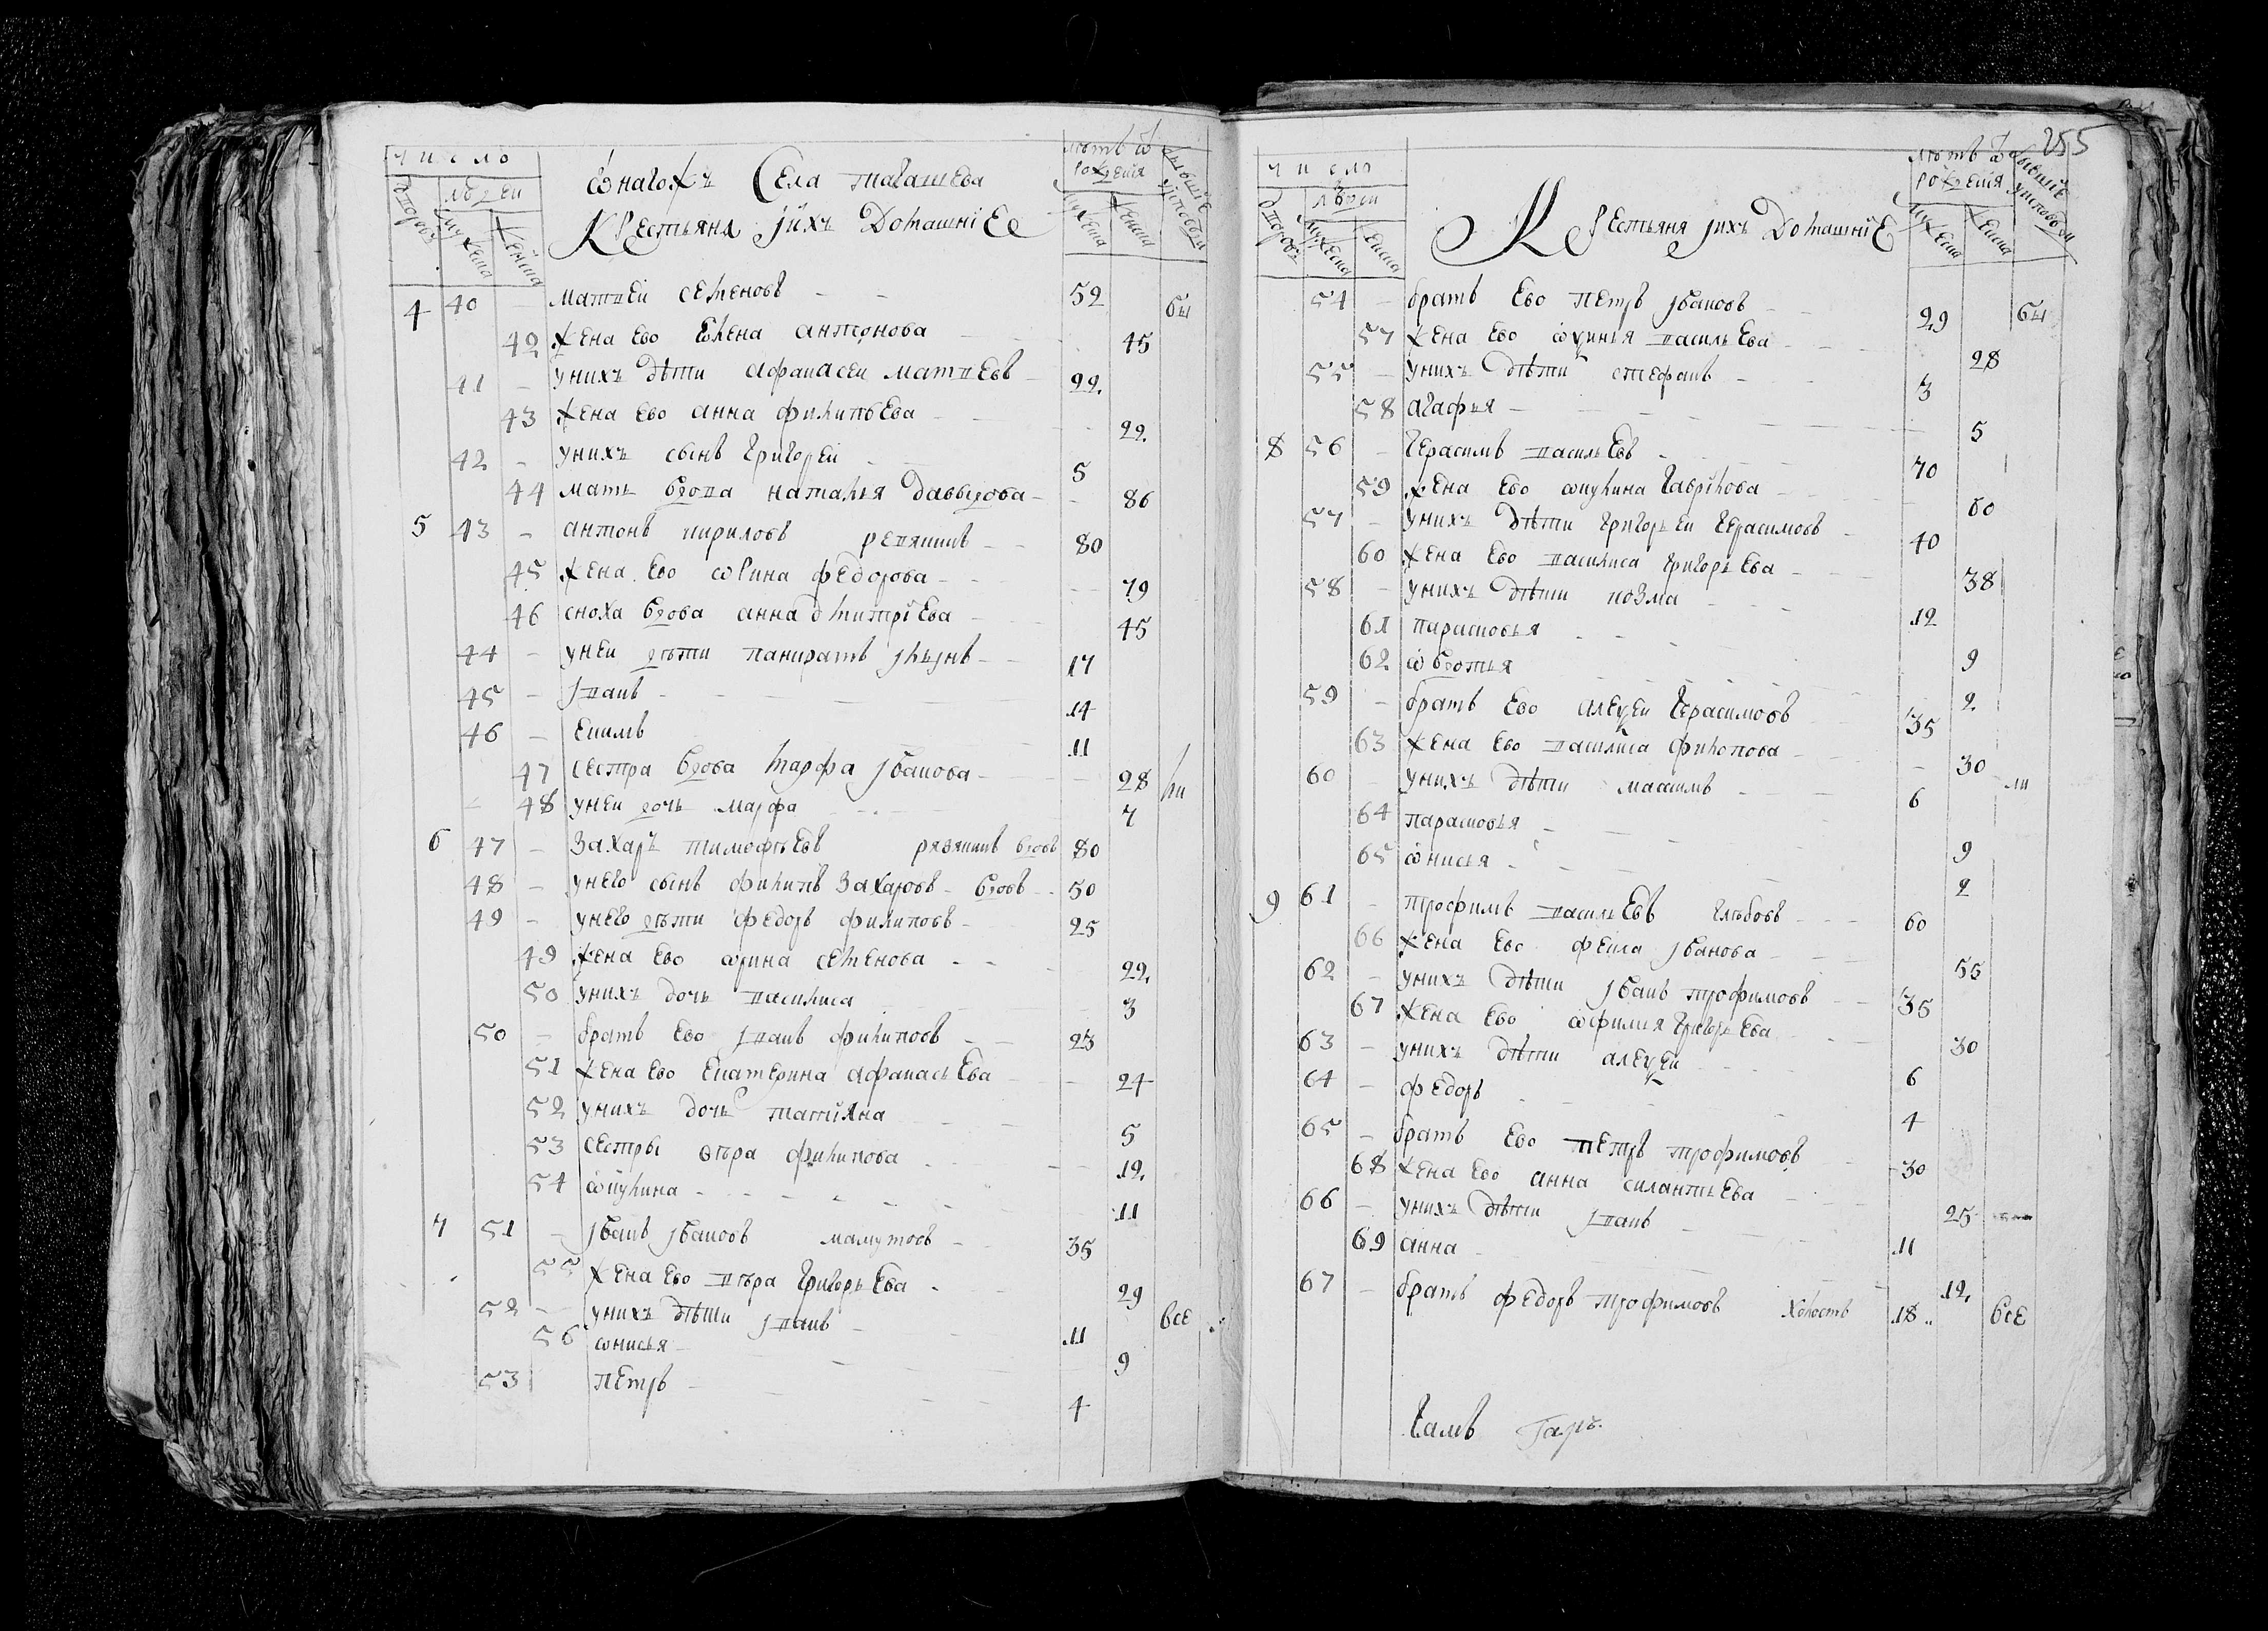 число
людеи
дворовъ
мужеска
женска
Онагожъ Села тагашева
Крестьяня иихъ Домашние
летъ ѿ рожеѝя
мужеска
женска
бывшие уисповѣди
4 40 – матвеи семеновъ – – 52 бы
42 жена ево елена антонова – 45
41 – унихъ дѣти афанасеи матвеевъ – 22
43 жена ево анна филипьева – 22
42 – унихъ сынъ григореи – 5
44 мать вдова наталья давыдова – 86
5 43 – антонъ кириловъ – – 80
45 жена ево ѡрина федорова – 79
46 сноха вдова анна дмитриева – 45
44 – унеи дѣти панкратъ – 17
45 – иванъ – 14
46 – екимъ 11
47 сестра вдова марфа иванова – 28
48 унеи дочь марфа 7
6 47 – захаръ тимофѣевъ вдовъ 80
48 – унего сынъ филипъ захаровъ – вдовъ – 50
49 – унего дѣти федоръ филиповъ – 25
49 жена ево ѡрина семенова – 22
50 унихъ дочь василиса 3
50 – братъ ево иванъ филиповъ – 23
51 жена ево екатерина афанасьева – 24
52 унихъ дочь татияна 5
53 сестры вѣра филипова 12
54 ѡкулина – 11
7 51 – иванъ ивановъ мамутовъ – 35
55 жена ево вѣра григорьева – 29
52 – унихъ дѣти иванъ – 11 все
56 ѡнисья – 9
53 петръ – 4
255
число
людеи
дворовъ
мужеска
женска
Крестьяня иихъ Домашние
летъ ѿ рожеѝя
мужеска
женска
бывшие уисповѣди
54 – братъ ево петръ ивановъ – 29 бы
57 жена ево васильева – 28
55 – унихъ дѣти стефанъ – 3
58 агафья – 5
8 56 – герасимъ васильевъ – 70
59 жена ево ѡкулина гаврілова – 60
57 – унихъ дѣти григореи герасимовъ – 40
60 жена ево василиса григорьева – 38
58 – унихъ дѣти козма 12
61 парасковья – 9
62 ѡвдотья 2
59 – братъ ево алеѯеи герасимовъ 35
63 жена ево василиса филипова – 30
60 – унихъ дѣти маѯимъ – 6 ли
64 парасковья – 9
65 ѡнисья – 2
9 61 – трофимъ васильевъ глѣбовъ – 60
66 жена ево фекла иванова – 55
62 – унихъ дѣти иванъ трофимовъ – 35
67 жена ево ѡфимия григорьева 30
63 – унихъ дѣти алеѯеи 6
64 – федоръ 4
65 – братъ ево петръ трофимовъ 30
68 жена ево анна силантьева – 25
66 – унихъ дѣти иванъ – 11
69 анна – 12
67 – братъ федоръ трофимовъ холостъ 18 все